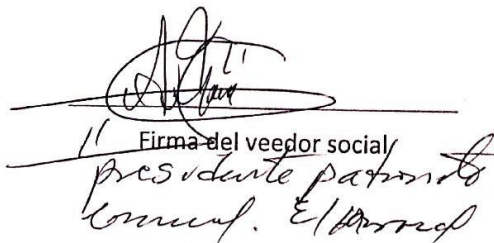 Firma del veedor social
presidente patronato
comunal. El